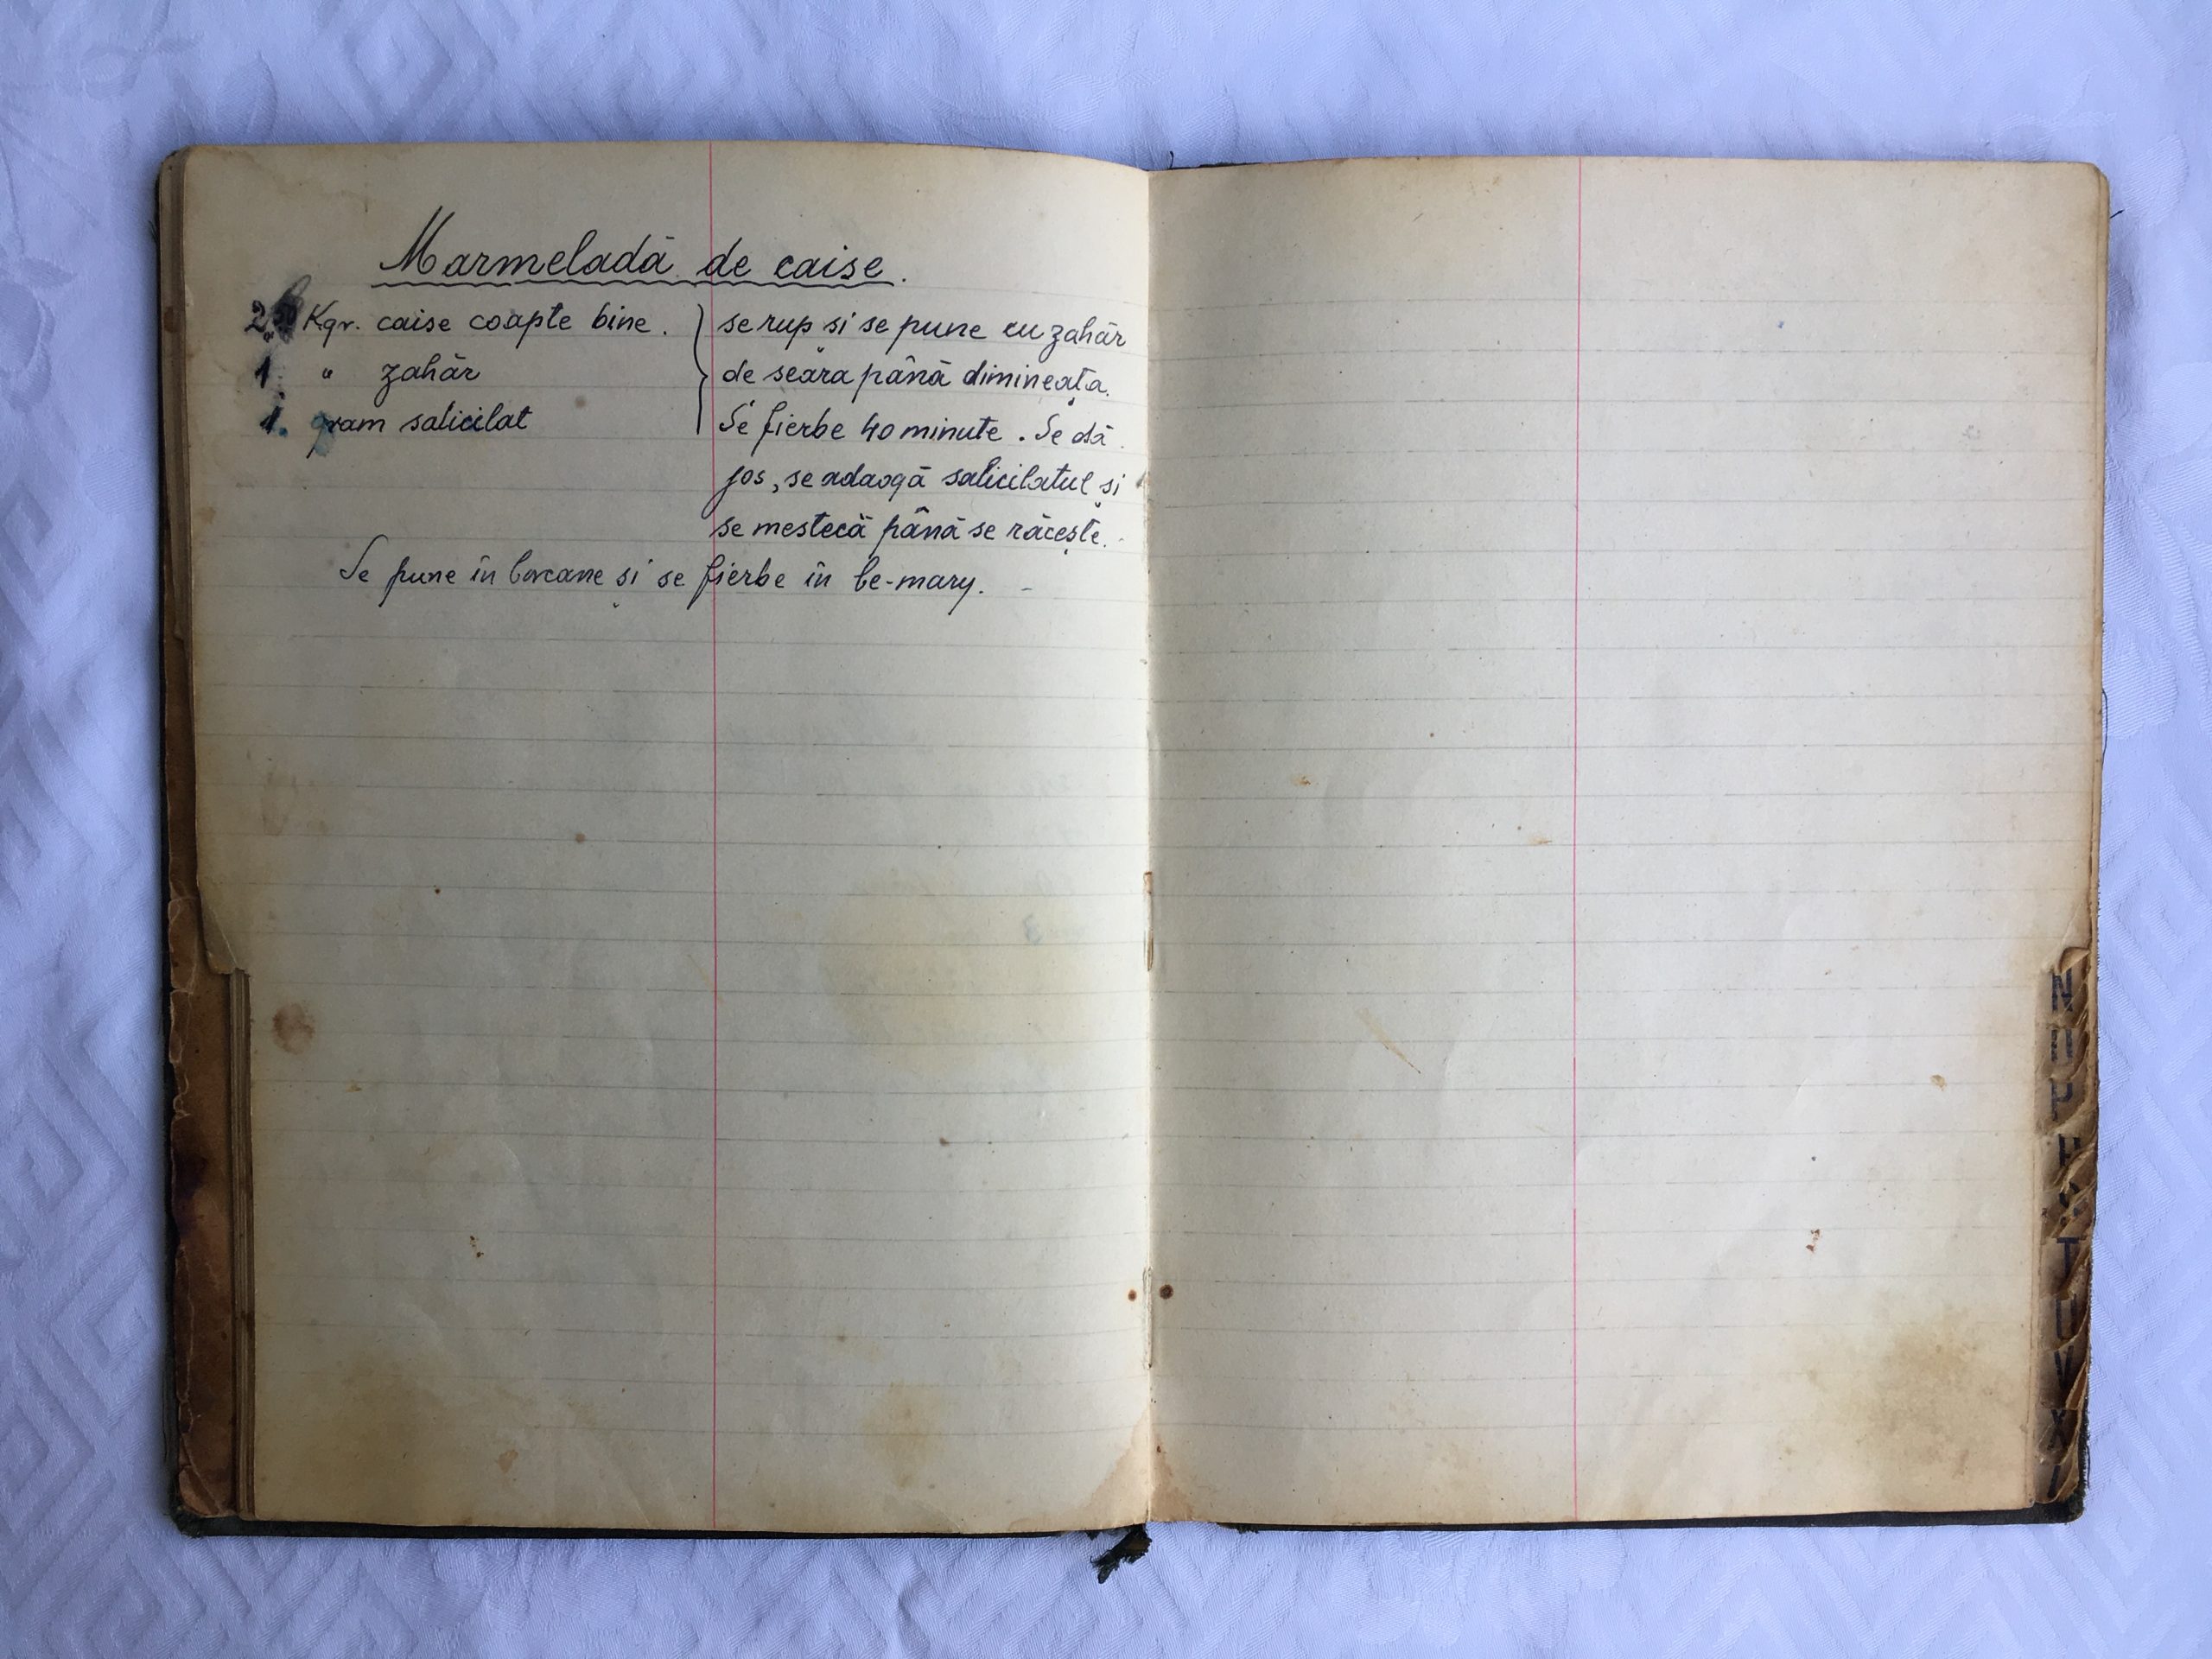 Marmeladă de caise.
2,50 Kgr. caise coapte bine.
1. " zahăr
1. gram salicilat
se rup și se pune cu zahăr
de seara până dimineața.
Se fierbe 40 minute. Se dă
jos, se adaogă salicilatul și
se mestecă până se răcește.
Se pune în borcane și se fierbe în be-mary. -
N
P
R
S
T
U
V
X